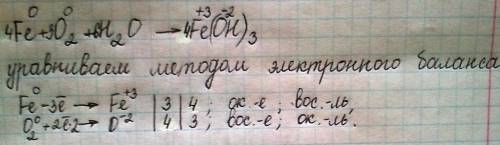 4Fe⁰+3O₂⁰+6H₂O → 4Fe⁺³(OH)₃⁻²
уравниваем методом электронного баланса
Fe⁰-3ē → Fe⁺³ | 3 | 4 ; ок.-е ; вос.-ль,
O₂⁰+2ē2 → O⁻² | 4 | 3 ; вос.-е ; ок.-ль.